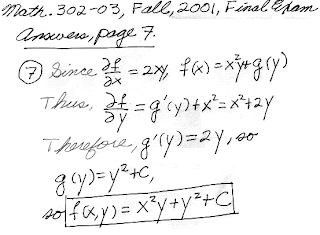 Math. 302-03, Fall, 2001, Final Exam
Answers, page 7.
⑦ Since ∂f/∂x = 2xy, f(x) = x²y+g(y)
Thus, ∂f/∂y = g'(y)+x² = x²+2y
Therefore, g'(y) = 2y, so
g(y) = y²+C,
so f(x,y) = x²y+y²+C